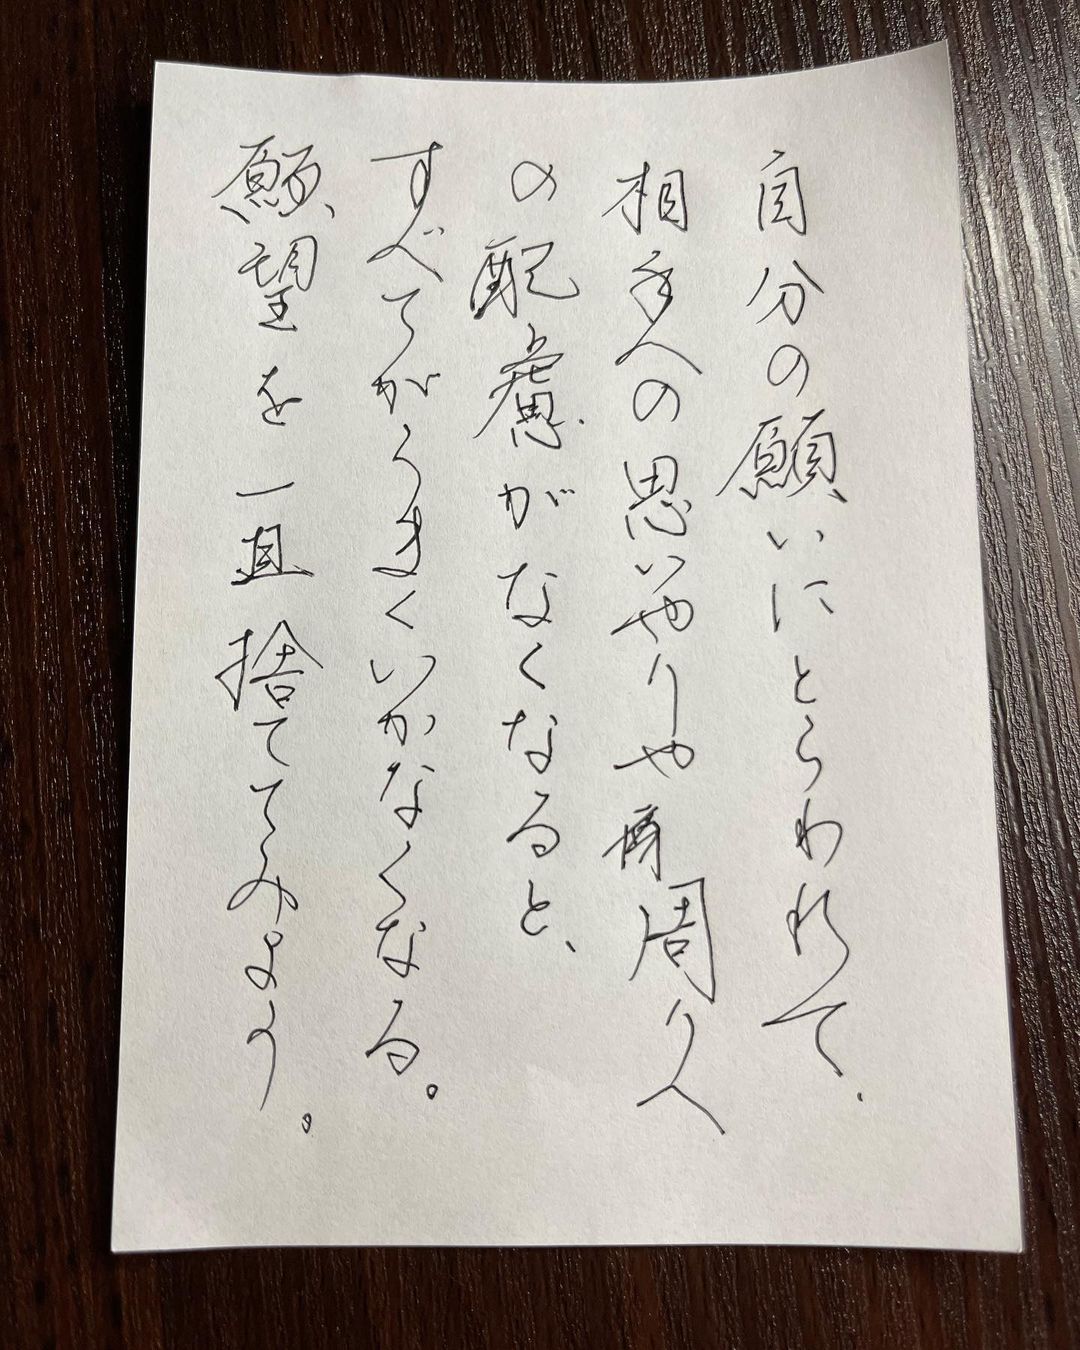 自分の願いにとらわれて、
相手への思いやりや周りへ
の配慮がなくなると、
すべてがうまくいかなくなる。
願望を一旦捨ててみよう。